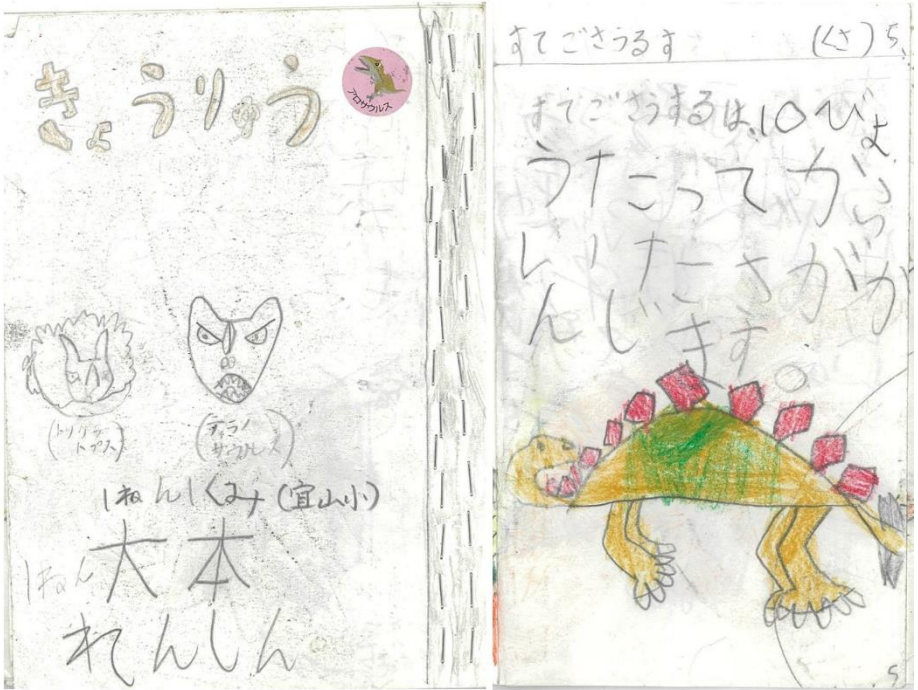 きょうりゅう
アロサウルス
(トリケラトプス)
(ティラノサウルス)
1ねん1くみ(宜山小)
1ねん 大本
れんしん
すてごさうるす (くさ) 5
すてごさうするは、10びょ
うたってから
しいたさがが
んじます
5